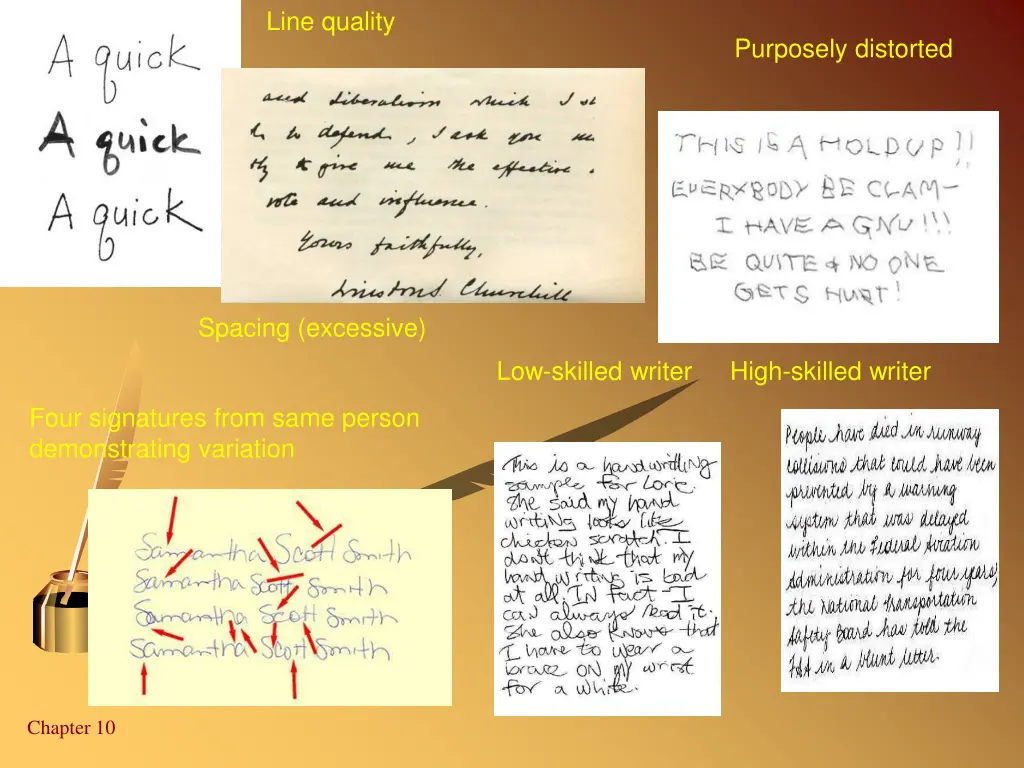 Line quality
A quick
A quick
A quick
and liberalism which I st
h to defend, I ask you
tly to give me the effective
vote and influence.
Yours faithfully,
Winston S. Churchill
Spacing (excessive)
Purposely distorted
THIS IS A HOLDUP!!
EVERXBODY BE CLAM-
I HAVE A GNU!!!
BE QUITE & NO ONE
GETS HURT!
Four signatures from same person
demonstrating variation
Samantha Scott Smith
Samantha Scott Smith
Samantha Scott Smith
Samantha Scott Smith
Low-skilled writer
This is a handwriting
sample for Lorie.
She said my hand
writing looks like
chicken scratch. I
don't think that my
handwriting is bad
at all. IN fact I
can always read it.
She also knows that
I have to wear a
brace ON my wrist
for a while.
High-skilled writer
People have died in runway
collisions that could have been
prevented by a warning
system that was delayed
within the Federal Aviation
Administration for four years,
the National Transportation
Safety Board has told the
FAA in a blunt letter.
Chapter 10